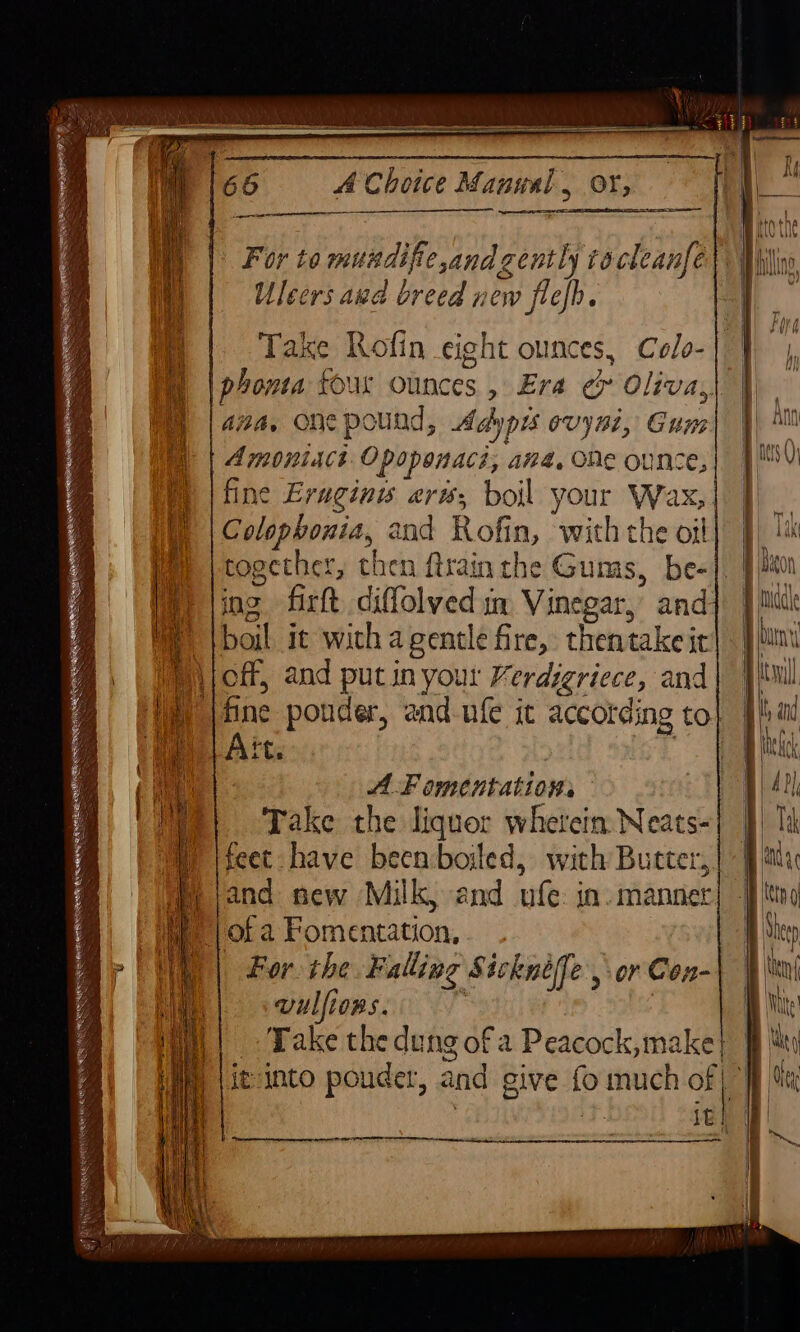 66 A Choice Manual, or,
For to mundifie, and gently to cleanſe
Ulcers and breed new fleſh.
Take Roſin eight ounces, Colo-
phonia four ounces, Era & Oliva,
ana. one pound, Adypis ovyni, Gum
Amoniaci Opoponaci, ana. one ounce,
fine Eruginis æris, boil your Wax,
Colophonia, and Roſin, with the oil
together, then ſtrain the Gums, be-
ing firſt diſſolved in Vinegar, and
boil it with a gentle fire, then take it
off, and put in your Verdigriece, and
fine pouder, and uſe it according to
Art.
A Fomentation.
Take the liquor wherein Neats-
feet have been boiled, with Butter,
and new Milk, and uſe in manner
of a Fomentation.
For the Falling Sickneſſe, or Con-
vulſions.
Take the dung of a Peacock, make
it into pouder, and give ſo much of
it